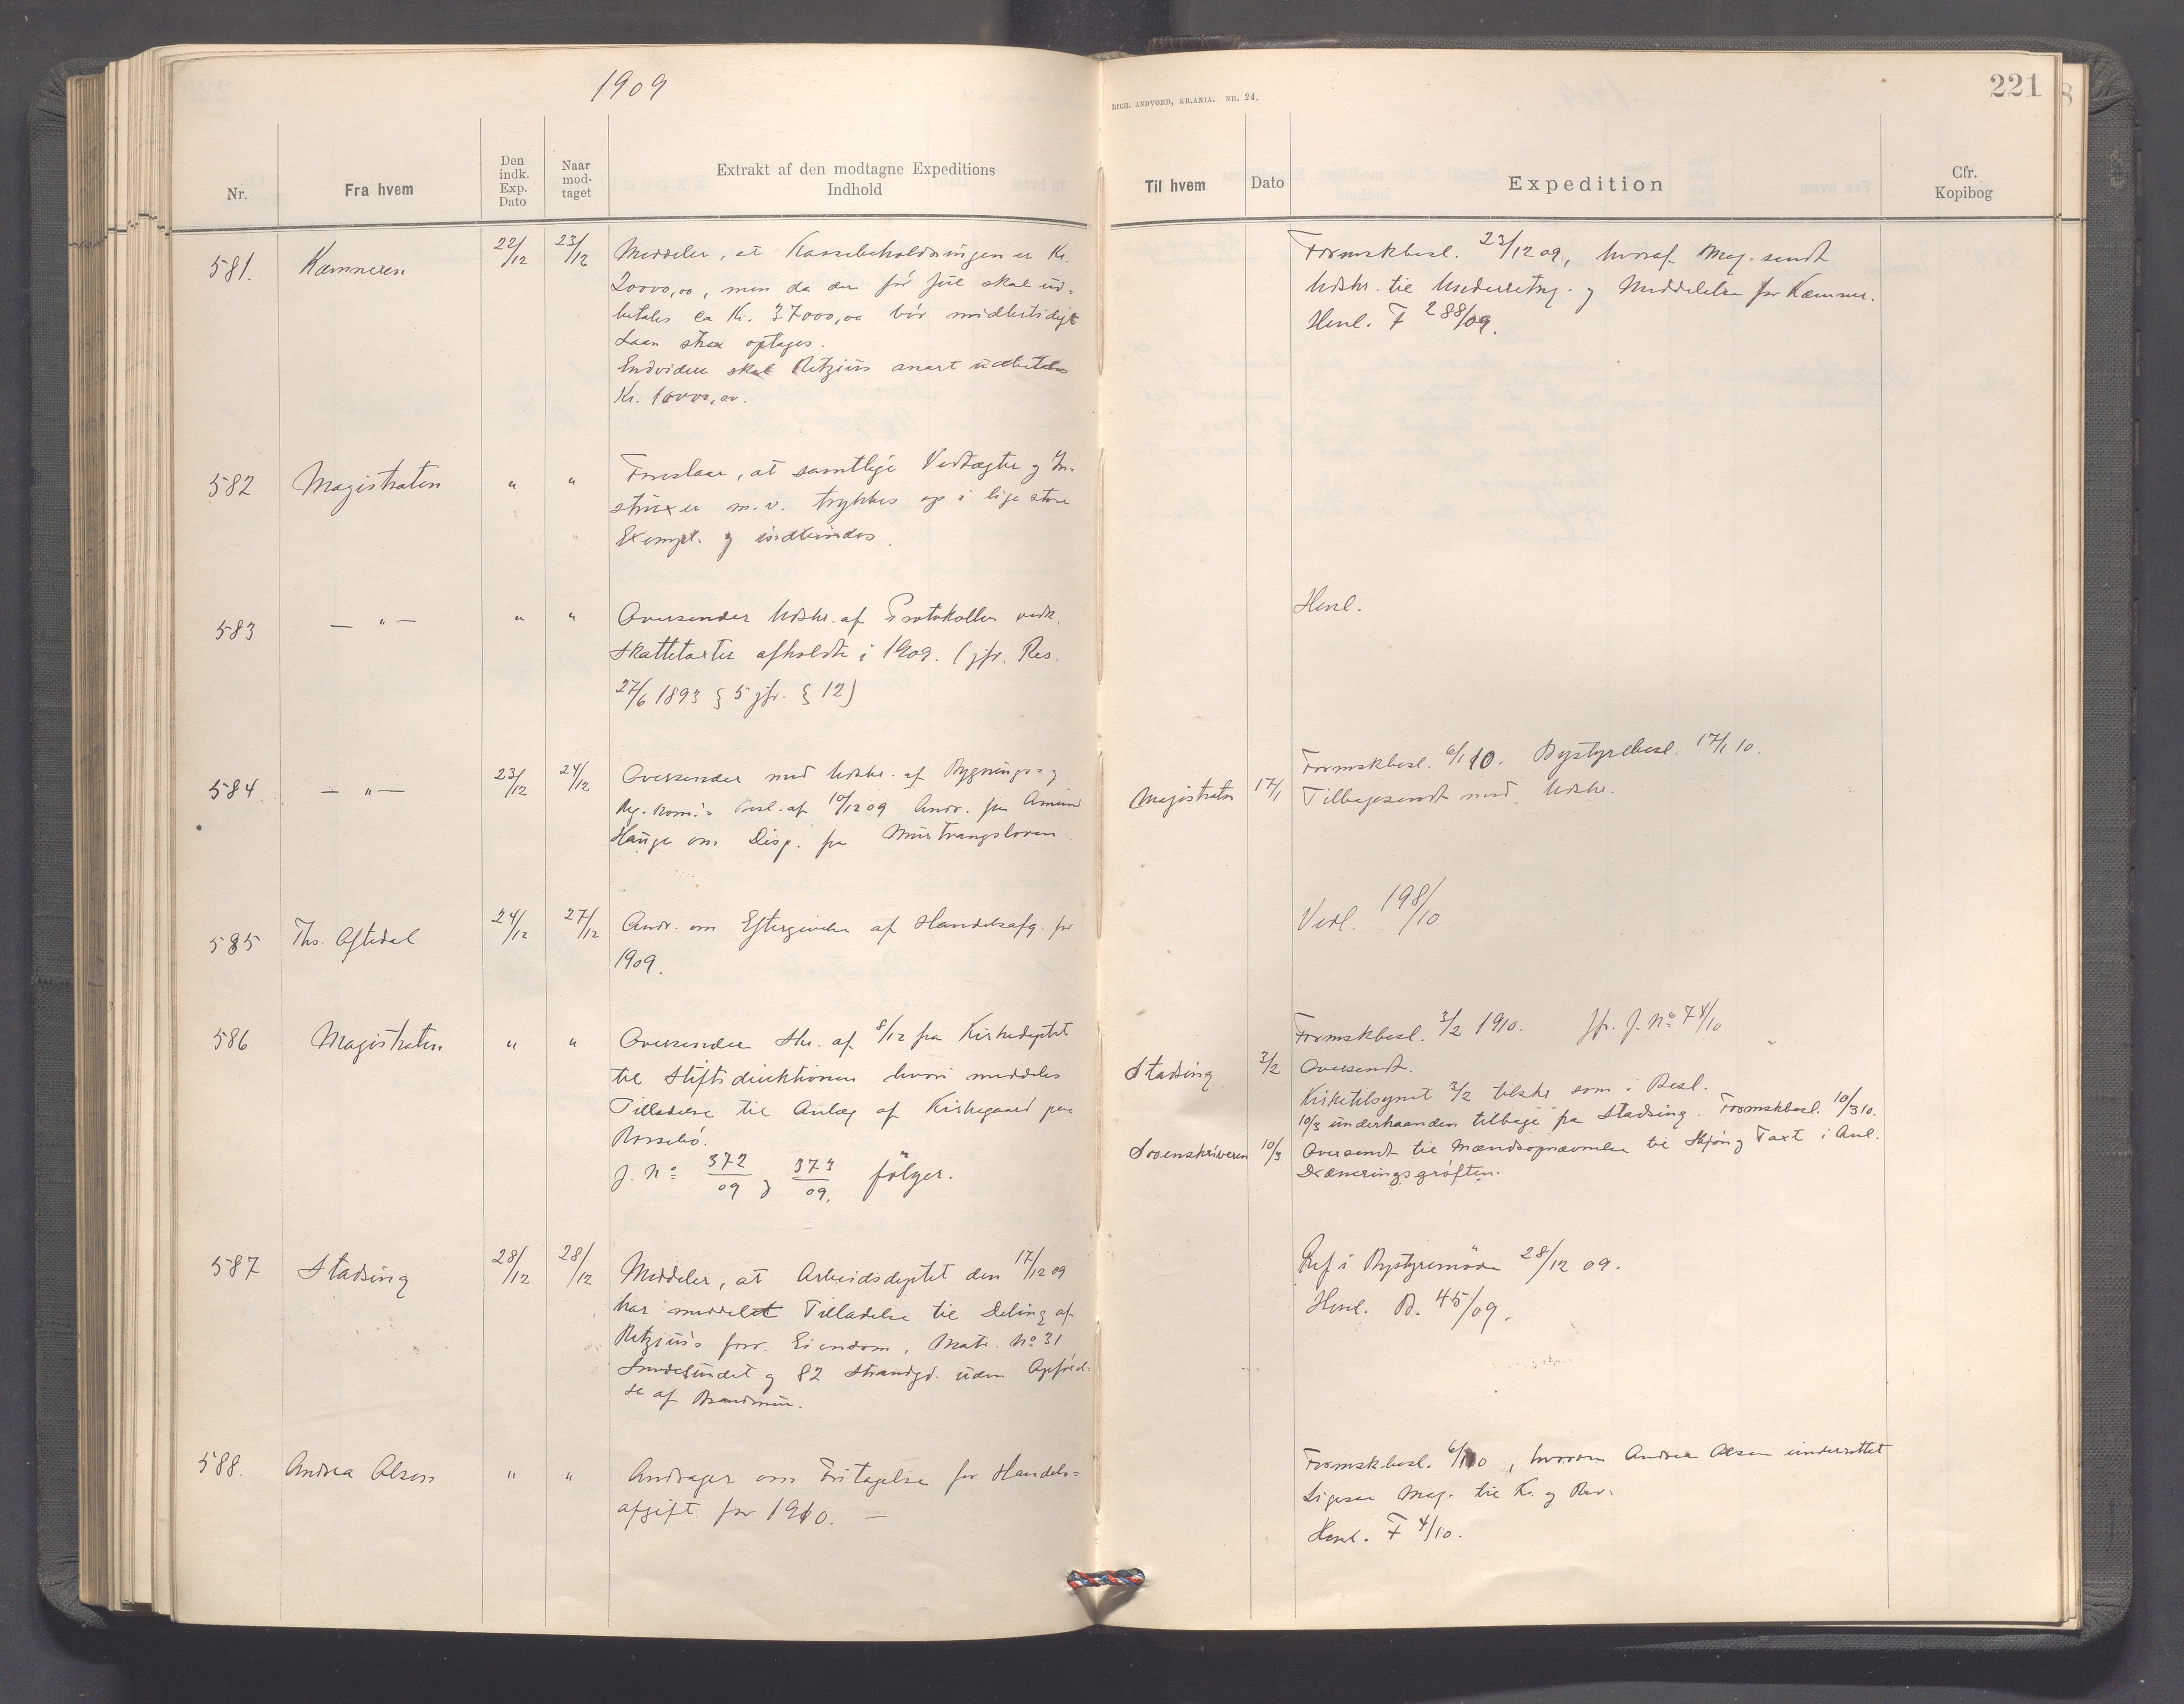 1909
Nr.
Fra hvem
Den indk. Exp. Dato
Naar mod-taget
Extrakt af den modtagne Expeditions Indhold
581.
Kæmneren
22/12
23/12
Meddeler, at Kassebeholdningen er Kr.
20000,00, men da der før Jul skal ud-
betales ca Kr. 37000,00 bør midlertidigt
Laan strax optages.
Endvidere skal Retzius snart udbetales
Kr. 10000,00.
582
Magistraten
"
"
Foreslaar, at samtlige Vedtægter og In-
struxer m.v. trykkes op i lige store
Exempl. og indbindes.
583
— " —
"
"
Oversender Udskr. af Protokollen vedk.
Skattetaxter afholdte i 1909. (jfr. Res.
27/6 1893 § 5 jfr. § 12)
584.
— " —
23/12
24/12
Oversender med Udskr. af Bygnings- og
Reg. Kom.'s Besl. af 10/12 09 Andr. fra Amund
Hauge om Disp. fra Murtvangsloven.
585
Ths. Oftedal
24/12
27/12
Andr. om Eftergivelse af Handelsafg. for
1909.
586
Magistraten
"
"
Oversender Skr. af 8/12 fra Kirkedeptet
til Stiftsdirektionen hvori meddeles
Tilladelse til Anlæg af Kirkegaard paa
Rossebø.
J. No 372/09 og 373/09. følger.
587
Stadsing
28/12
28/12
Meddeler, at Arbeidsdeptet den 17/12 09
har meddelt Tilladelse til Deling af
Retzius's forr. Eiendom, Matr. No 31
Smedesundet og 82 Strandgd. uden Opførel-
se af Brandmur.
588.
Andrea Olsen
"
"
Andrager om Fritagelse for Handels-
afgift for 1910. —
RICH. ANDVORD, KR.ANIA. NR. 24.
221
Til hvem
Dato
Expedition
Cfr. Kopibog
Formskbesl. 23/12 09, hvoraf Mag. sendt
Udskr. til Underretng. og Meddelelse for Kæmner.
Henl. F 288/09.
Henl.
Formskbesl. 6/1 10. Bystyrebesl. 17/1 10.
Magistraten
17/1
Tilbagesendt med Udskr.
Vedl. 198/10
Formskbesl. 3/2 1910. Jfr. J. No 74/10
Stadsing
3/2
Oversendt.
Kirketilsynet 3/2 tilskr. som i Besl.
10/3 underhaanden tilbage fra Stadsing. Formskbesl. 10/3 10.
Sorenskriveren
10/3
Oversendt til Mændsopnævnelse til Skjøn og Taxt i Anl.
Dræneringsgrøften.
Ref i Bystyremøde 28/12 09.
Henl. B. 45/09.
Formskbesl. 6/1 10, hvorom Andrea Olsen underrettet
Ligesaa Mag. til K. og Rev.
Henl. F 4/10.